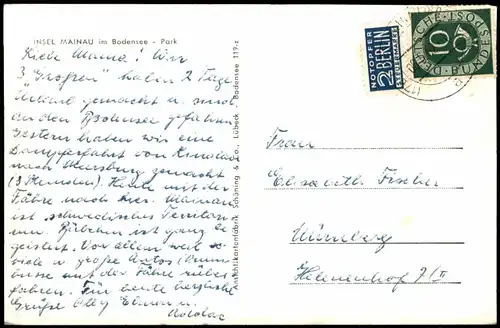 INSEL MAINAU im Bodensee - Park
Liebe Mama! Wir
3 "Großen" haben 2 Tage
Urlaub gemacht u. sind
an den Bodensee gefahren.
Gestern haben wir eine
Dampferfahrt von Konstanz
nach Meersburg gemacht
(3 Stunden). Heute mit der
Fähre nach hier. Mainau
ist schwedisches Territori-
um. Bübchen ist ganz be-
geistert. Vor allem weil so
viele u. große Autos (Omni-
busse auf der Fähre rüber
fahren. Für heute herzliche
Grüße
Ankichtkartenfabrik Schöning & Co., Lübeck Bodensee 119-z
NOTOPFER
2 BERLIN
STEUERMARKE
10
DEUTSCHE BUNDESPOST
Frau
Elisabeth Fischer
Nürnberg
Helenenhof 7/II